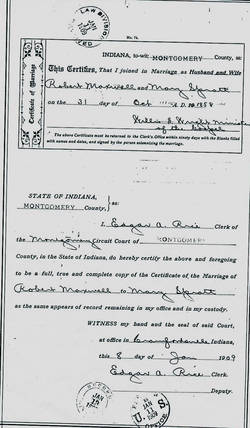 LAW DIVISION
JAN
1909
No. 74.
INDIANA, to-wit: MONTGOMERY County, ss:
Certificate of Marriage
This Certifies, That I joined in Marriage as Husband and Wife
Robert Maxwell and Mary Spratt
on the 31 day of Oct A. D. 1858
Minister
of the Gospel
The above Certificate must be returned to the Clerk's Office within ninety days with the Blanks filled
with names and dates, and signed by the person solemnizing the marriage.
STATE OF INDIANA,
MONTGOMERY County, ss:
I, Edgar A. Rice Clerk of
the Montgomery Circuit Court of MONTGOMERY
County, in the State of Indiana, do hereby certify the above and foregoing
to be a full, true and complete copy of the Certificate of the Marriage of
Robert Maxwell to Mary Spratt
as the same appears of record remaining in my office and in my custody.
WITNESS my hand and the seal of said Court,
at office in Crawfordsville, Indiana,
this 8 day of Jan 1909
Edgar A. Rice Clerk
Deputy.
JAN
U. S.
JAN
11
1909
OFFICE